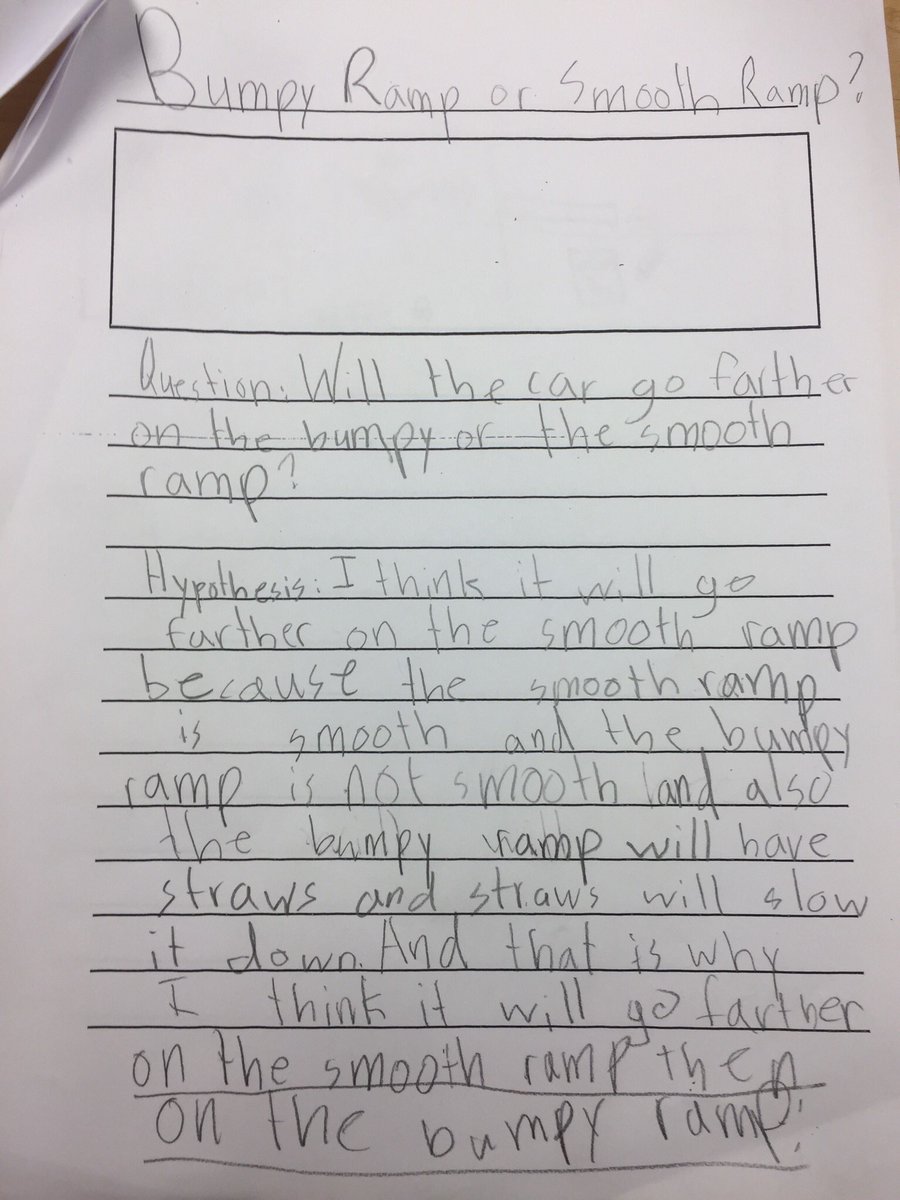 Bumpy Ramp or Smooth Ramp?
Question: Will the car go farther
on the bumpy or the smooth
ramp?
Hypothesis: I think it will go
farther on the smooth ramp
because the smooth ramp
is smooth and the bumpy
ramp is not smooth and also
the bumpy ramp will have
straws and straws will slow
it down. And that is why
I think it will go farther
on the smooth ramp then
on the bumpy ramp.